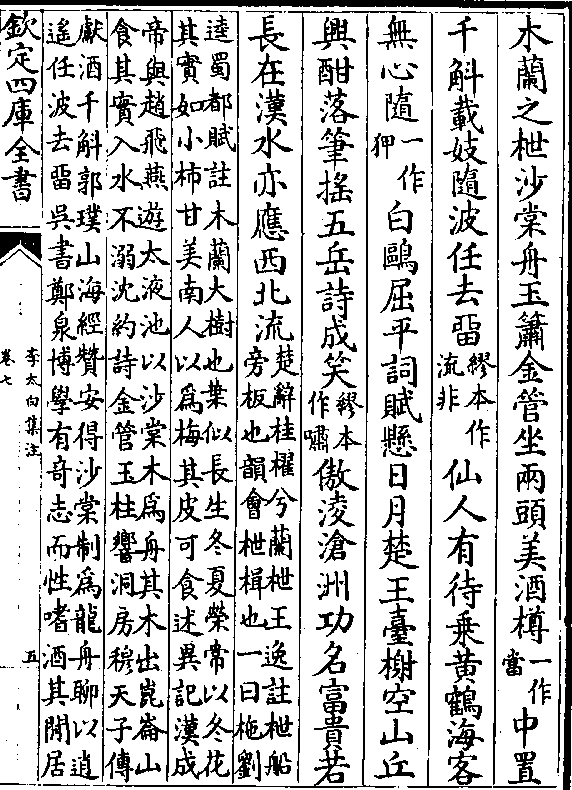 木蘭之枻沙棠舟玉簫金管坐兩頭美酒樽一作當中置
千斛載妓隨波任去畱繆本作流非仙人有待乗黃鶴海客
無心隨一作狎白鷗屈平詞賦懸日月楚王臺榭空山丘
興酣落筆搖五岳詩成笑繆本作嘯傲淩滄洲功名富貴若
長在漢水亦應西北流楚辭桂櫂兮蘭枻王逸註枻船
旁板也韻會枻楫也一曰柂劉
逵蜀都賦註木蘭大樹也葉似長生冬夏榮常以冬花
其實如小柿甘美南人以爲梅其皮可食述異記漢成
帝與趙飛燕遊太液池以沙棠木爲舟其木出崑崙山
食其實入水不溺沈約詩金管玉柱響洞房穆天子傳
獻酒千斛郭璞山海經贊安得沙棠制爲龍舟聊以逍
遙任波去畱吳書鄭泉博學有奇志而性嗜酒其閒居
欽定四庫全書
李太白集注
卷七
五